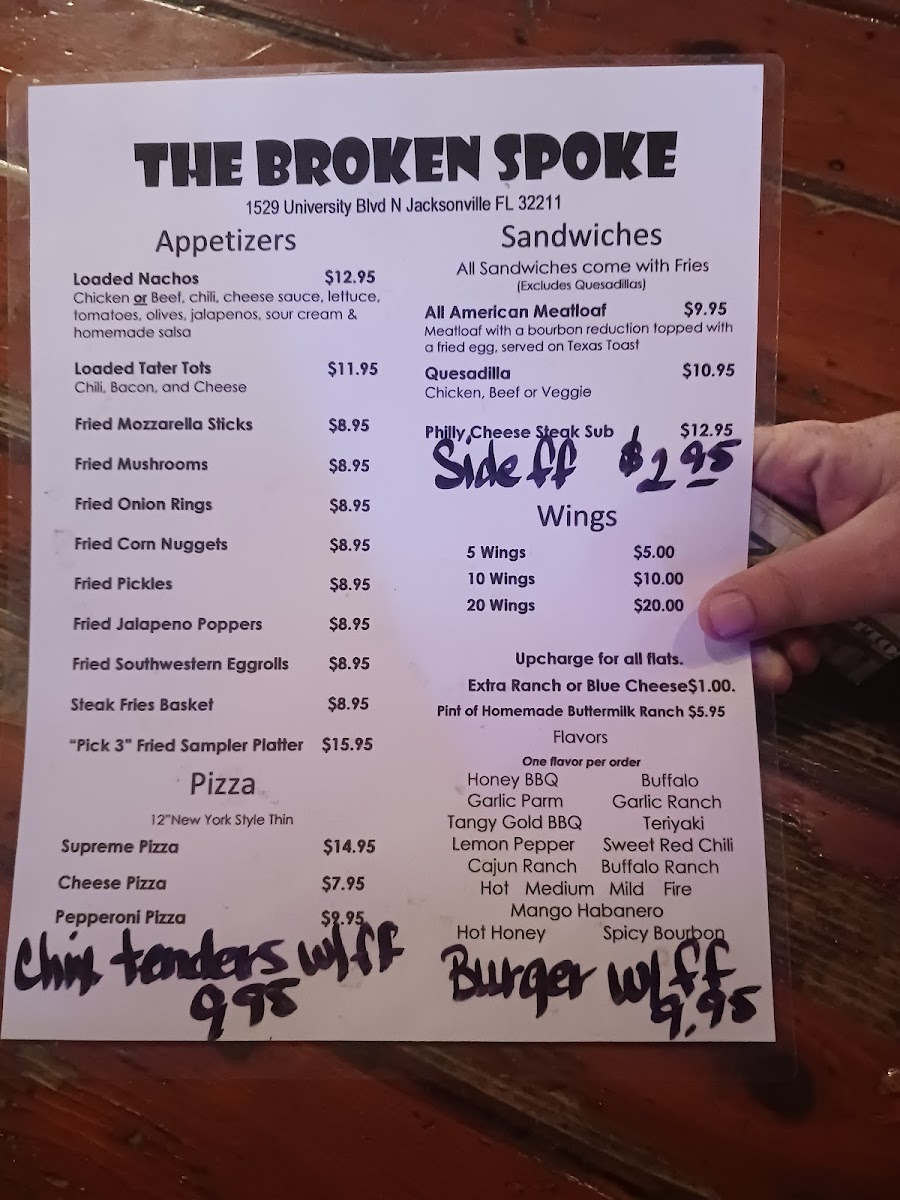 THE BROKEN SPOKE
1529 University Blvd N Jacksonville FL 32211
Appetizers
Loaded Nachos $12.95
Chicken or Beef, chili, cheese sauce, lettuce,
tomatoes, olives, jalapenos, sour cream &
homemade salsa
Loaded Tater Tots $11.95
Chili, Bacon, and Cheese
Fried Mozzarella Sticks $8.95
Fried Mushrooms $8.95
Fried Onion Rings $8.95
Fried Corn Nuggets $8.95
Fried Pickles $8.95
Fried Jalapeno Poppers $8.95
Fried Southwestern Eggrolls $8.95
Steak Fries Basket $8.95
“Pick 3” Fried Sampler Platter $15.95
Pizza
12"New York Style Thin
Supreme Pizza $14.95
Cheese Pizza $7.95
Pepperoni Pizza $9.95
tenders w/ff
9 95
Sandwiches
All Sandwiches come with Fries
(Excludes Quesadillas)
All American Meatloaf $9.95
Meatloaf with a bourbon reduction topped with
a fried egg, served on Texas Toast
Quesadilla $10.95
Chicken, Beef or Veggie
Philly Cheese Steak Sub $12.95
Side ff $2 95
Wings
5 Wings $5.00
10 Wings $10.00
20 Wings $20.00
Upcharge for all flats.
Extra Ranch or Blue Cheese$1.00.
Pint of Homemade Buttermilk Ranch $5.95
Flavors
One flavor per order
Honey BBQ Buffalo
Garlic Parm Garlic Ranch
Tangy Gold BBQ Teriyaki
Lemon Pepper Sweet Red Chili
Cajun Ranch Buffalo Ranch
Hot Medium Mild Fire
Mango Habanero
Hot Honey Spicy Bourbon
Burger w/ff
9.95